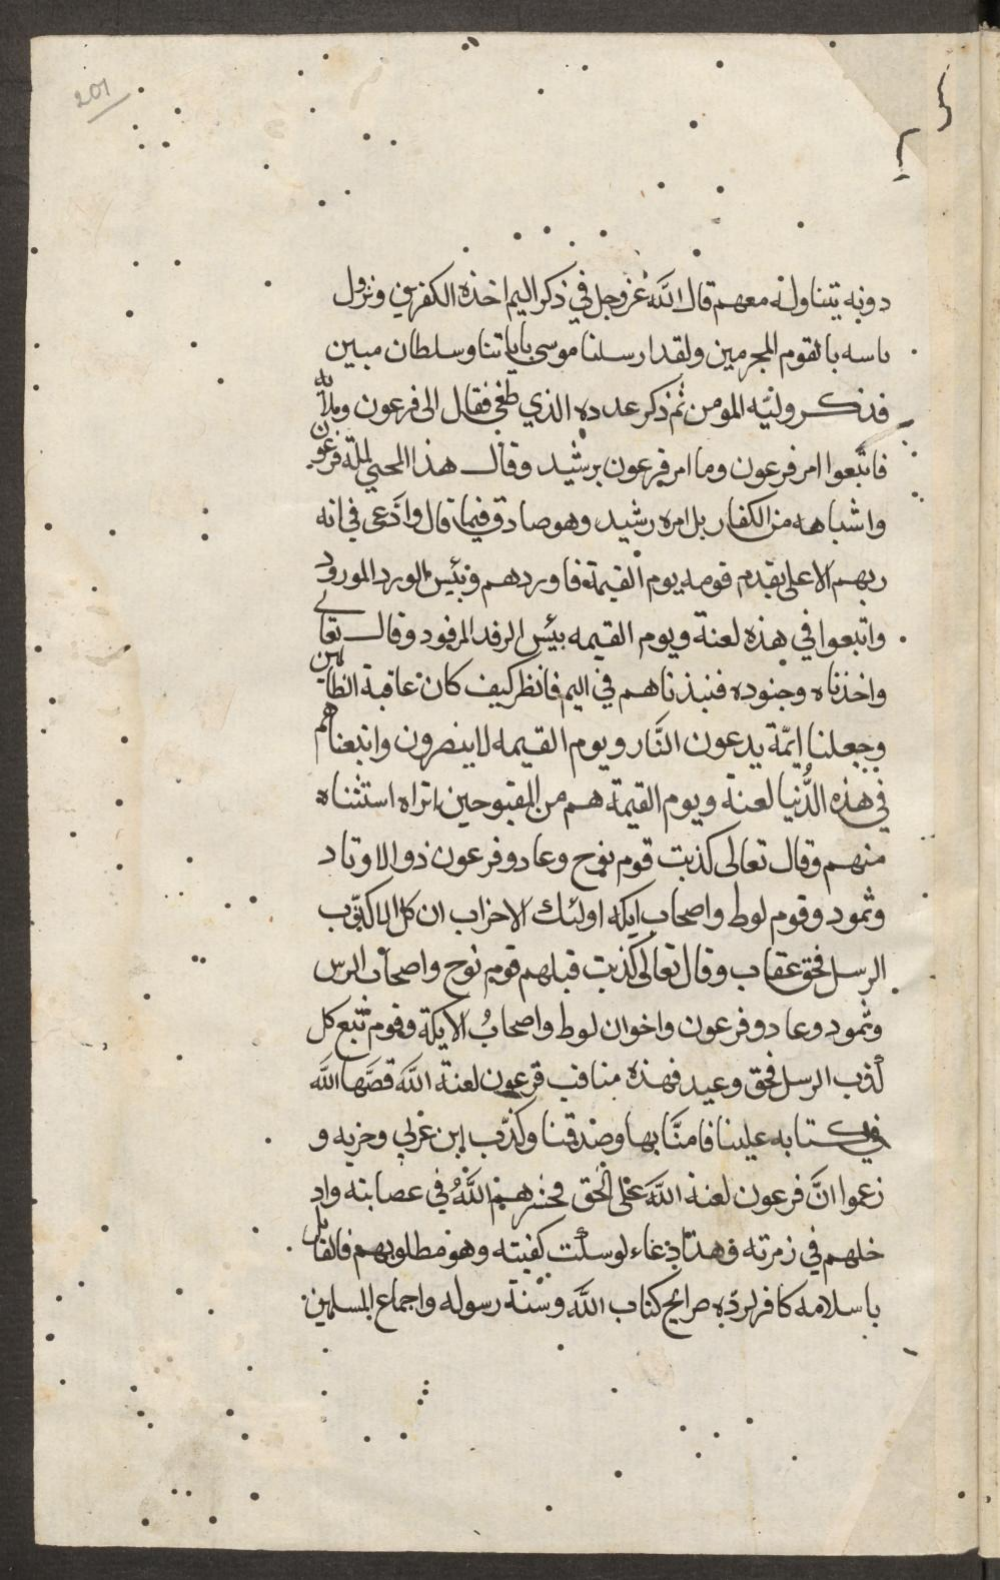 201
دونه يتناوله معهم قال الله عز وجل في ذكر اليم اخذه الكفرين ونزول
باسه بالقوم المجرمين ولقد ارسلنا موسى باياتنا وسلطان مبين
فذكر وليه المومن ثم ذكر عدوه الذي طغى فقال الى فرعون وملائه
فاتبعوا امر فرعون وما امر فرعون برشيد وقال هذا المحيي لملة فرعون
واشباهه من الكفار بل امره رشيد وهو صادق فيما قال وادعى في انه
ربهم الاعلى يقدم قومه يوم القيمة فاوردهم وبئس الورد المورود
واتبعوا في هذه لعنة ويوم القيمه بيئس الرفد المرفود وقال تعالى
واخذناه وجنوده فنبذناهم في اليم فانظر كيف كان عاقبة الظالمين
وجعلنا ائمّة يدعون النَّار ويوم القيمه لا ينصرون واتبعناهم
في هذه الدُّنيا لعنة ويوم القيمة هم من المقبوحين اتراه استثناه
منهم وقال تعالى كذبت قوم نوح وعاد وفرعون ذو الاوتاد
وثمود وقوم لوط واصحاب ايكه اولئك الاحزاب ان كل الا كذّب
الرسل فحق عقاب وقال تعالى كذبت قبلهم قوم نوح واصحاب الرس
وثمود وعاد وفرعون واخوان لوط واصحابُ الايكة وقوم تبع كل
كذب الرسل فحق وعيد فهذه مناقب فرعون لعنة اللَّه قصَّها اللَّه
في كتابه علينا فامنَّا بها وصدقنا وكذّب ابن عربي وحزبه و
زعموا انَّ فرعون لعنة اللَّه على الحق فحشرهم اللَّهُ في عصابته واد
خلهم في زمرته وهذا دعاء لو سئلت كفيته وهو مطلوبهم فالقائل
باسلامه كافر لردّه صرايح كتاب اللَّه وسُنّة رسوله واجماع المسلمين